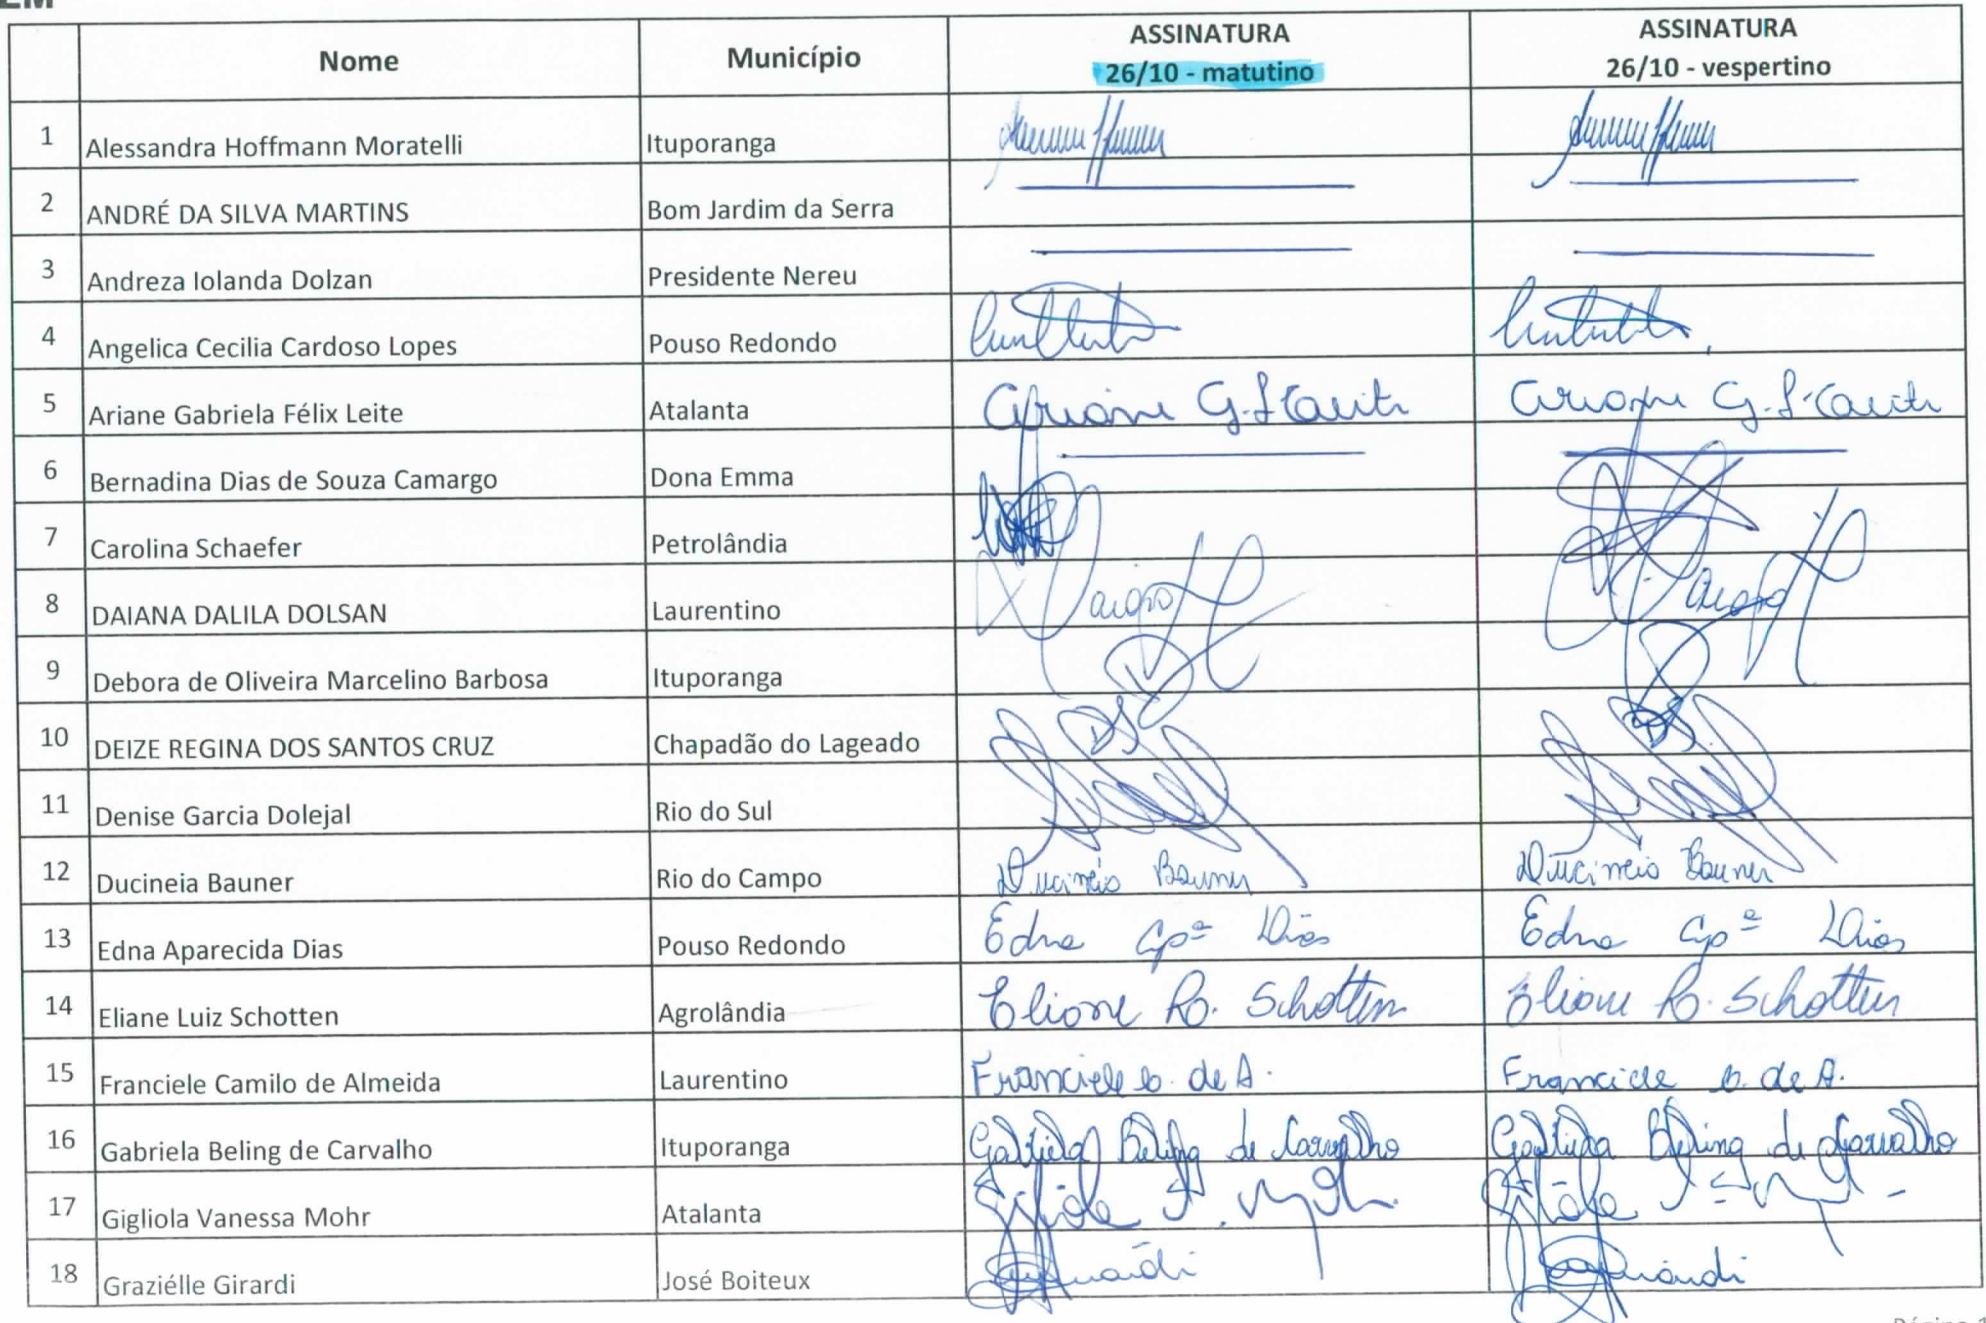 EM
Nome Município ASSINATURA 26/10 - matutino ASSINATURA 26/10 - vespertino
1 Alessandra Hoffmann Moratelli Ituporanga
2 ANDRÉ DA SILVA MARTINS Bom Jardim da Serra
3 Andreza Iolanda Dolzan Presidente Nereu
4 Angelica Cecilia Cardoso Lopes Pouso Redondo
5 Ariane Gabriela Félix Leite Atalanta Ariane G. F. Ariane G. F.
6 Bernadina Dias de Souza Camargo Dona Emma
7 Carolina Schaefer Petrolândia
8 DAIANA DALILA DOLSAN Laurentino
9 Debora de Oliveira Marcelino Barbosa Ituporanga
10 DEIZE REGINA DOS SANTOS CRUZ Chapadão do Lageado
11 Denise Garcia Dolejal Rio do Sul
12 Ducineia Bauner Rio do Campo Ducineia Bauner Ducineia Bauner
13 Edna Aparecida Dias Pouso Redondo Edna Apª Dias Edna Apª Dias
14 Eliane Luiz Schotten Agrolândia Eliane R. Schotten Eliane R. Schotten
15 Franciele Camilo de Almeida Laurentino Franciele C. de A. Franciele C. de A.
16 Gabriela Beling de Carvalho Ituporanga Gabriela Beling de Carvalho Gabriela Beling de Carvalho
17 Gigliola Vanessa Mohr Atalanta
18 Graziélle Girardi José Boiteux